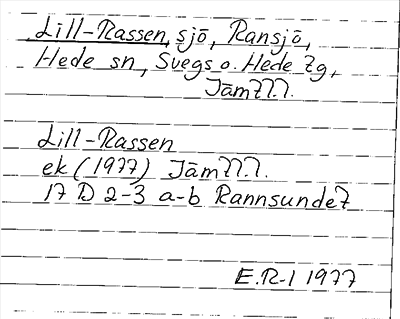 Lill-Rassen, sjö, Ransjö,
Hede sn, Svegs o. Hede tg,
Jämtl.l.
Lill-Rassen
ek (1977) Jämtl.l.
17 D 2-3 a-b Rannsundet
E.R-l 1977